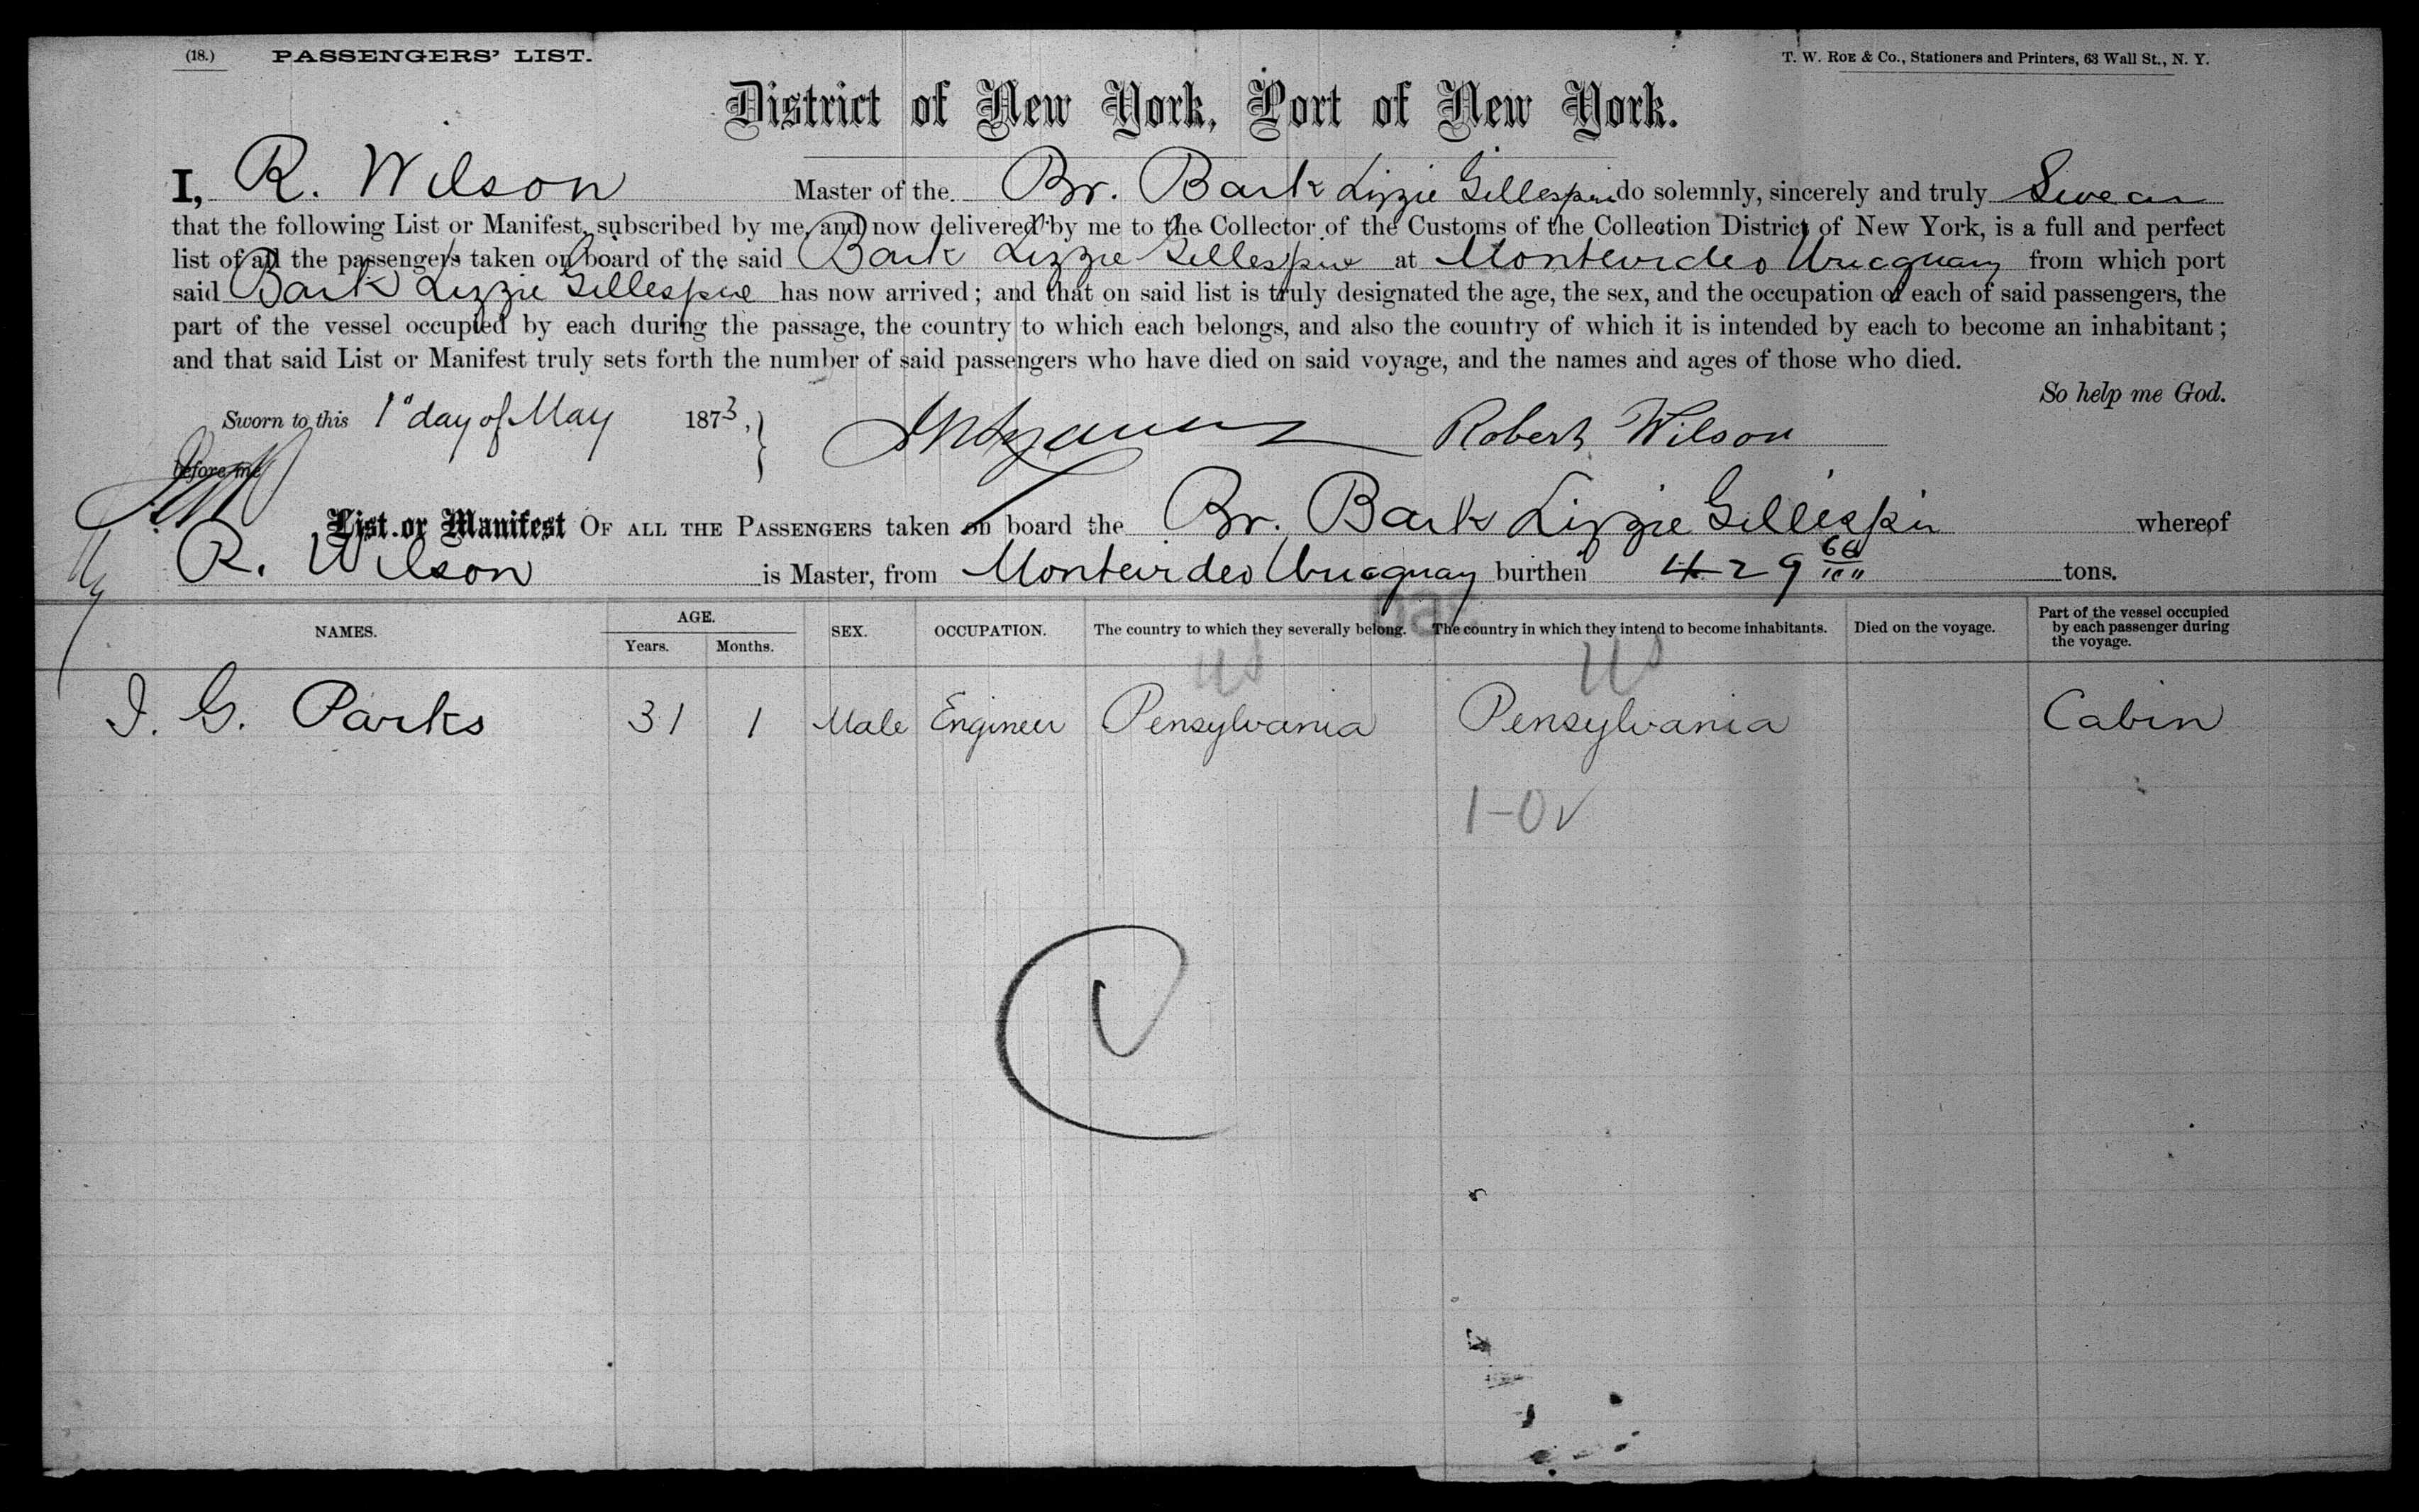 (18.) PASSENGERS' LIST. T. W. ROE & Co., Stationers and Printers, 63 Wall St., N. Y.
District of New York, Port of New York.
I, R. Wilson Master of the Br. Bark Lizzie Gillespie do solemnly, sincerely and truly Swear
that the following List or Manifest, subscribed by me, and now delivered by me to the Collector of the Customs of the Collection District of New York, is a full and perfect
list of all the passengers taken on board of the said Bark Lizzie Gillespie at Montevideo Uruguay from which port
said Bark Lizzie Gillespie has now arrived; and that on said list is truly designated the age, the sex, and the occupation of each of said passengers, the
part of the vessel occupied by each during the passage, the country to which each belongs, and also the country of which it is intended by each to become an inhabitant;
and that said List or Manifest truly sets forth the number of said passengers who have died on said voyage, and the names and ages of those who died.
So help me God.
Sworn to this 1" day of May 1873, Robert Wilson
before me
List or Manifest OF ALL THE PASSENGERS taken on board the Br. Bark Lizzie Gillespie whereof
R. Wilson is Master, from Montevideo Uruguay burthen 429 tons.
NAMES. AGE. Years. Months. SEX. OCCUPATION. The country to which they severally belong. The country in which they intend to become inhabitants. Died on the voyage. Part of the vessel occupied by each passenger during the voyage.
US US
I. G. Parks 31 1 Male Engineer Pensylvania Pensylvania Cabin
1-0✓